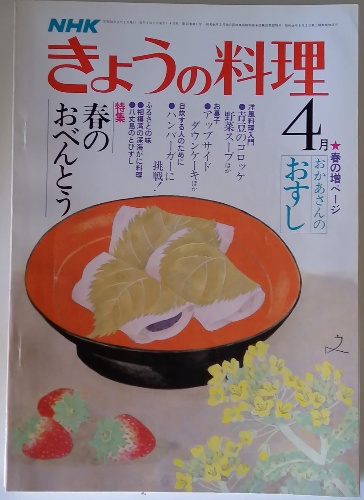 NHK
きょうの料理
4月
★春の増ページ
おかあさんの
おすし
洋風料理入門
●青豆のコロッケ
野菜スープほか
お菓子
●アップサイド
ダウンケーキほか
自炊する人のために
●ハンバーガーに
挑戦!
ふるさとの味
●相模湾の深海がに料理
●八丈島のとびずし
特集
春の
おべんとう